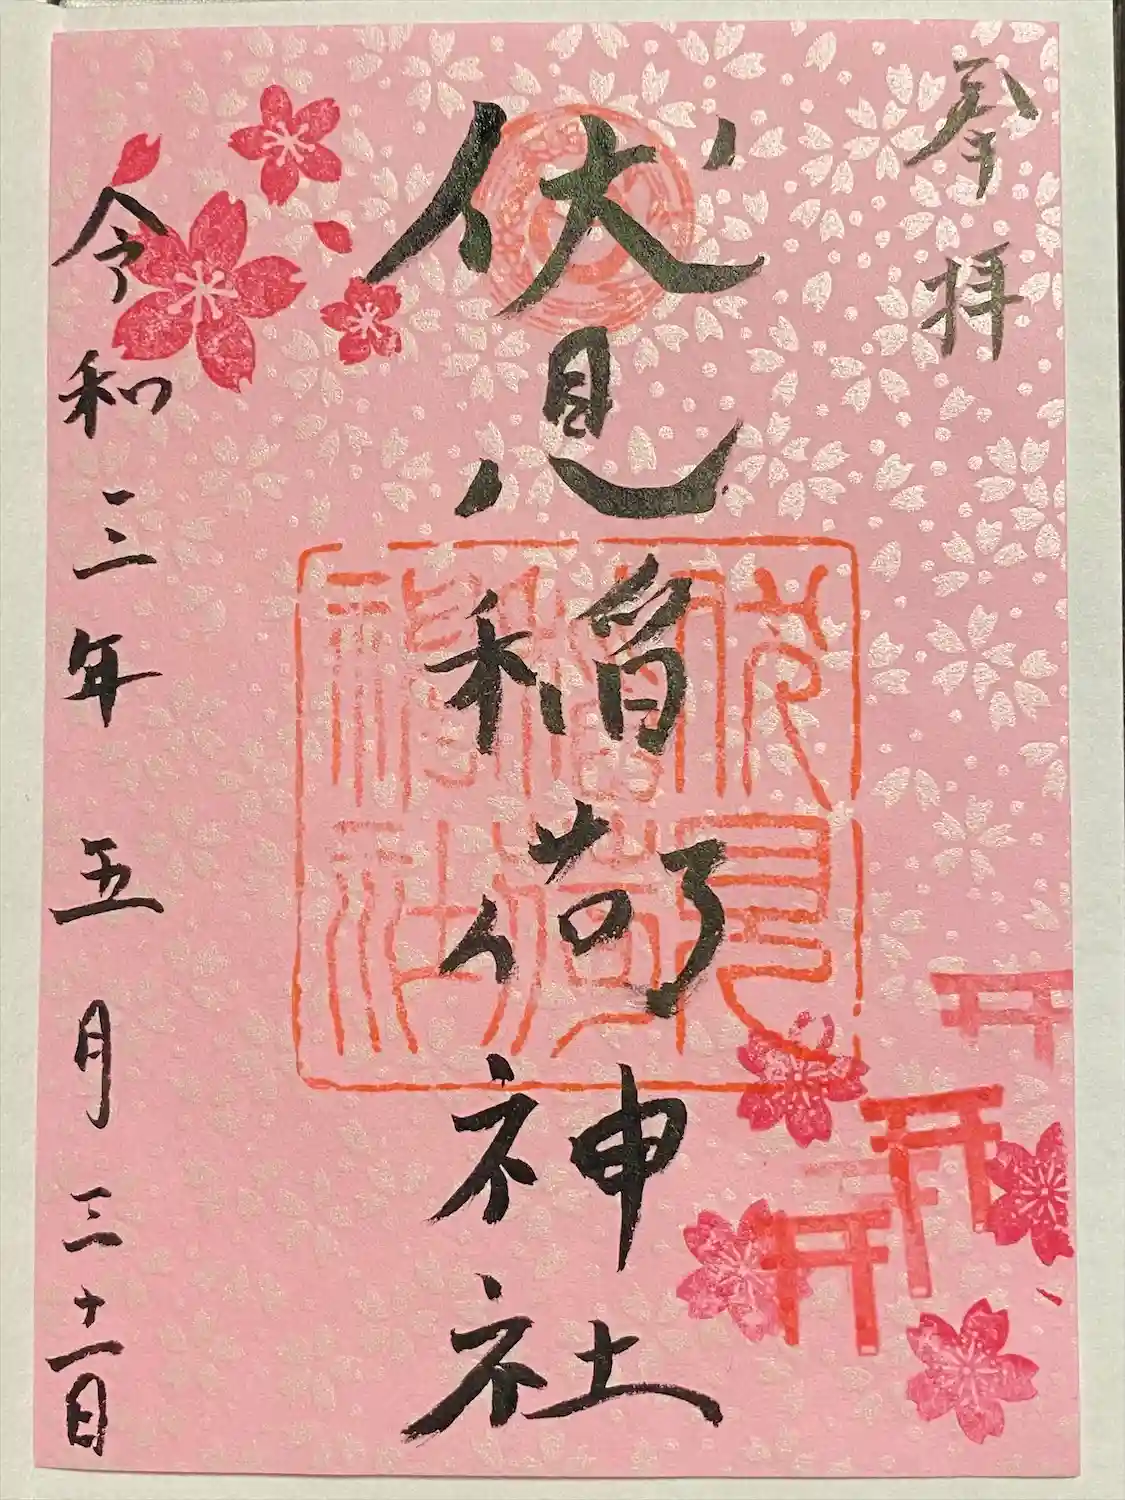 奉拝
伏見稲荷神社
伏見稲荷神社
令和三年五月三十一日